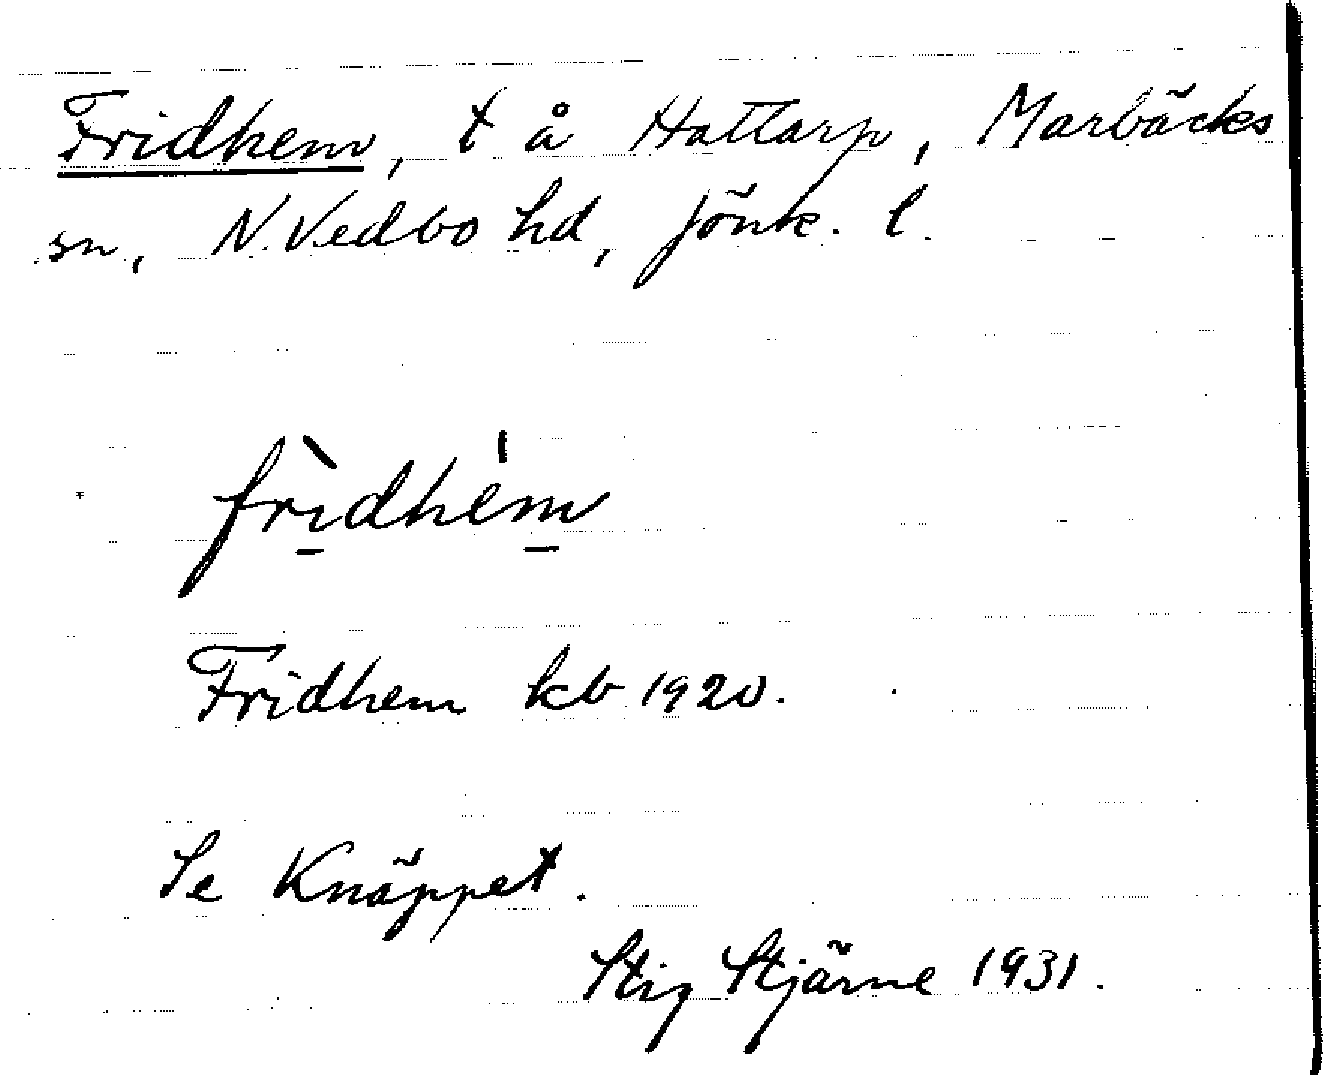 Fridhem, t å Hattarp, Marbäcks
sn, N. Vedbo hd, Jönk. l.
frì̱dhém̱
Fridhem kb 1920.
Se Knäppet.
Stig Stjärne 1931.